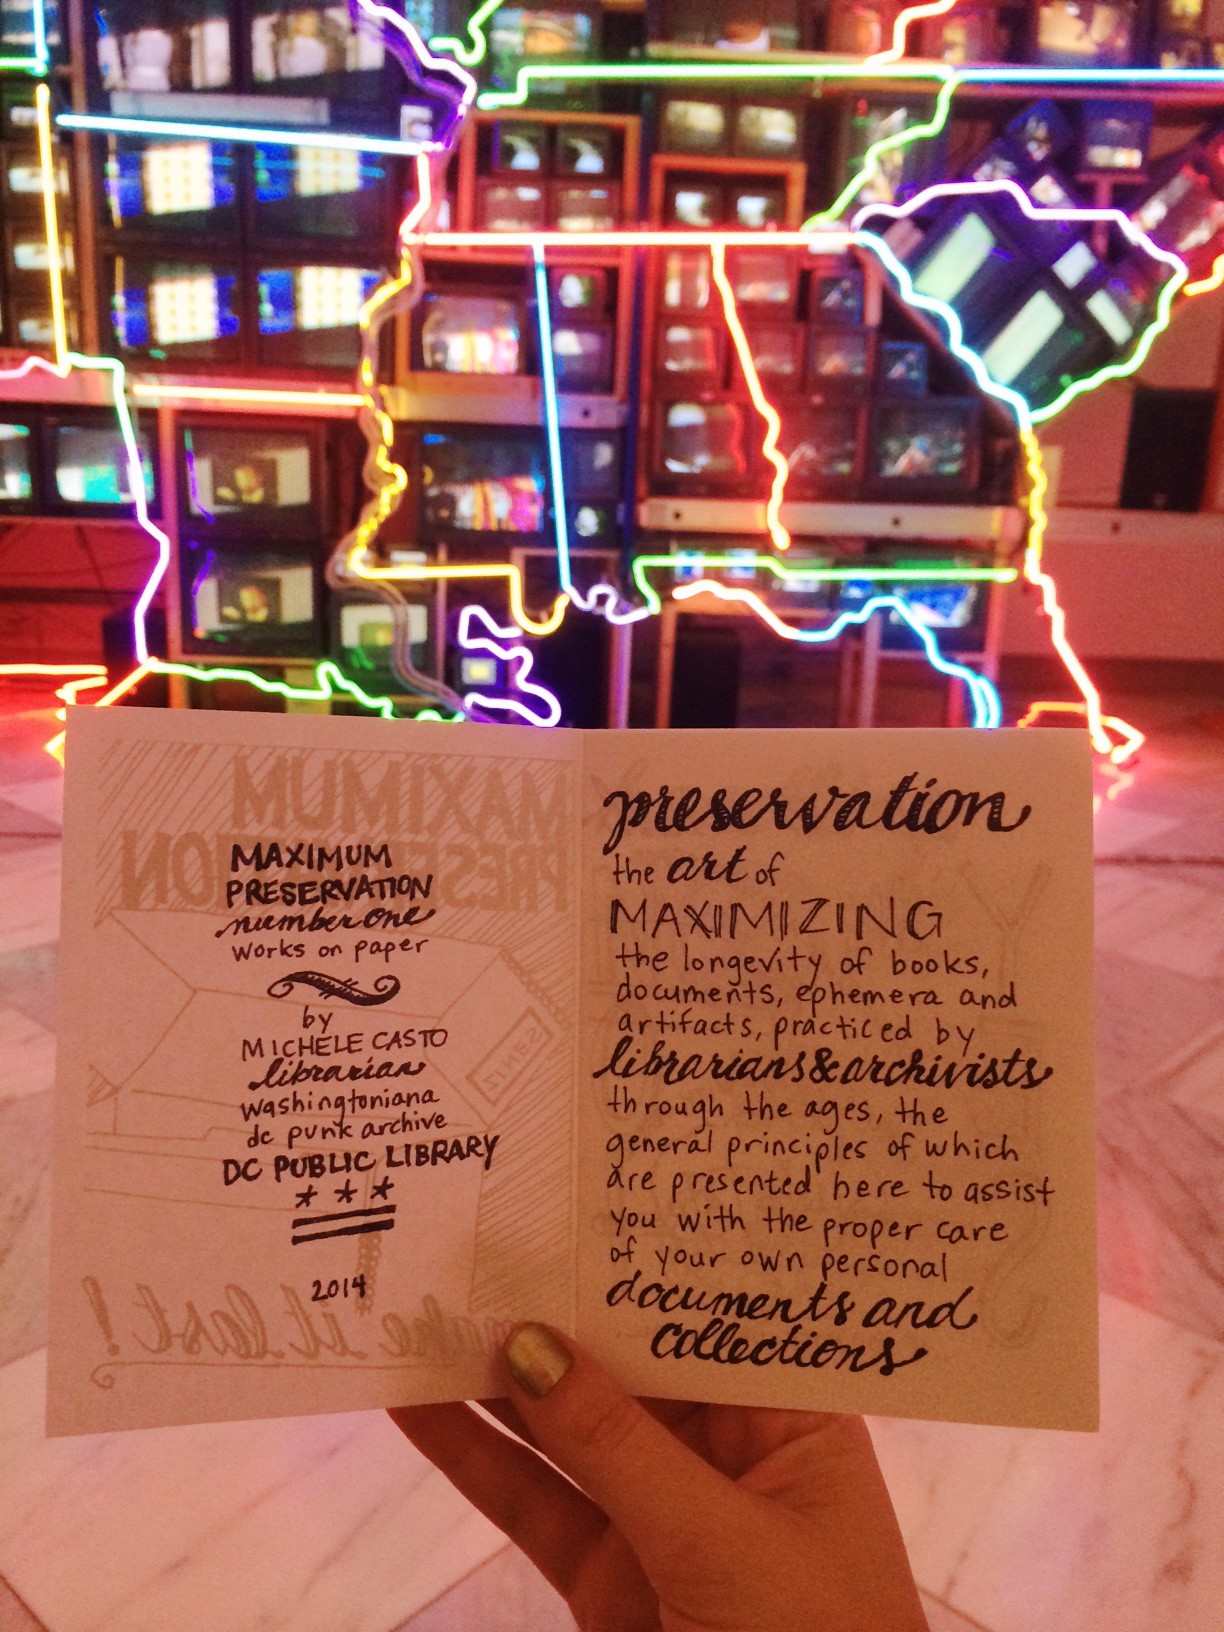 MAXIMUM
PRESERVATION
number one
works on paper
by
MICHELE CASTO
librarian
washingtoniana
dc punk archive
DC PUBLIC LIBRARY
2014
preservation
the art of
MAXIMIZING
the longevity of books,
documents, ephemera and
artifacts, practiced by
librarians & archivists
through the ages, the
general principles of which
are presented here to assist
you with the proper care
of your own personal
documents and
collections.